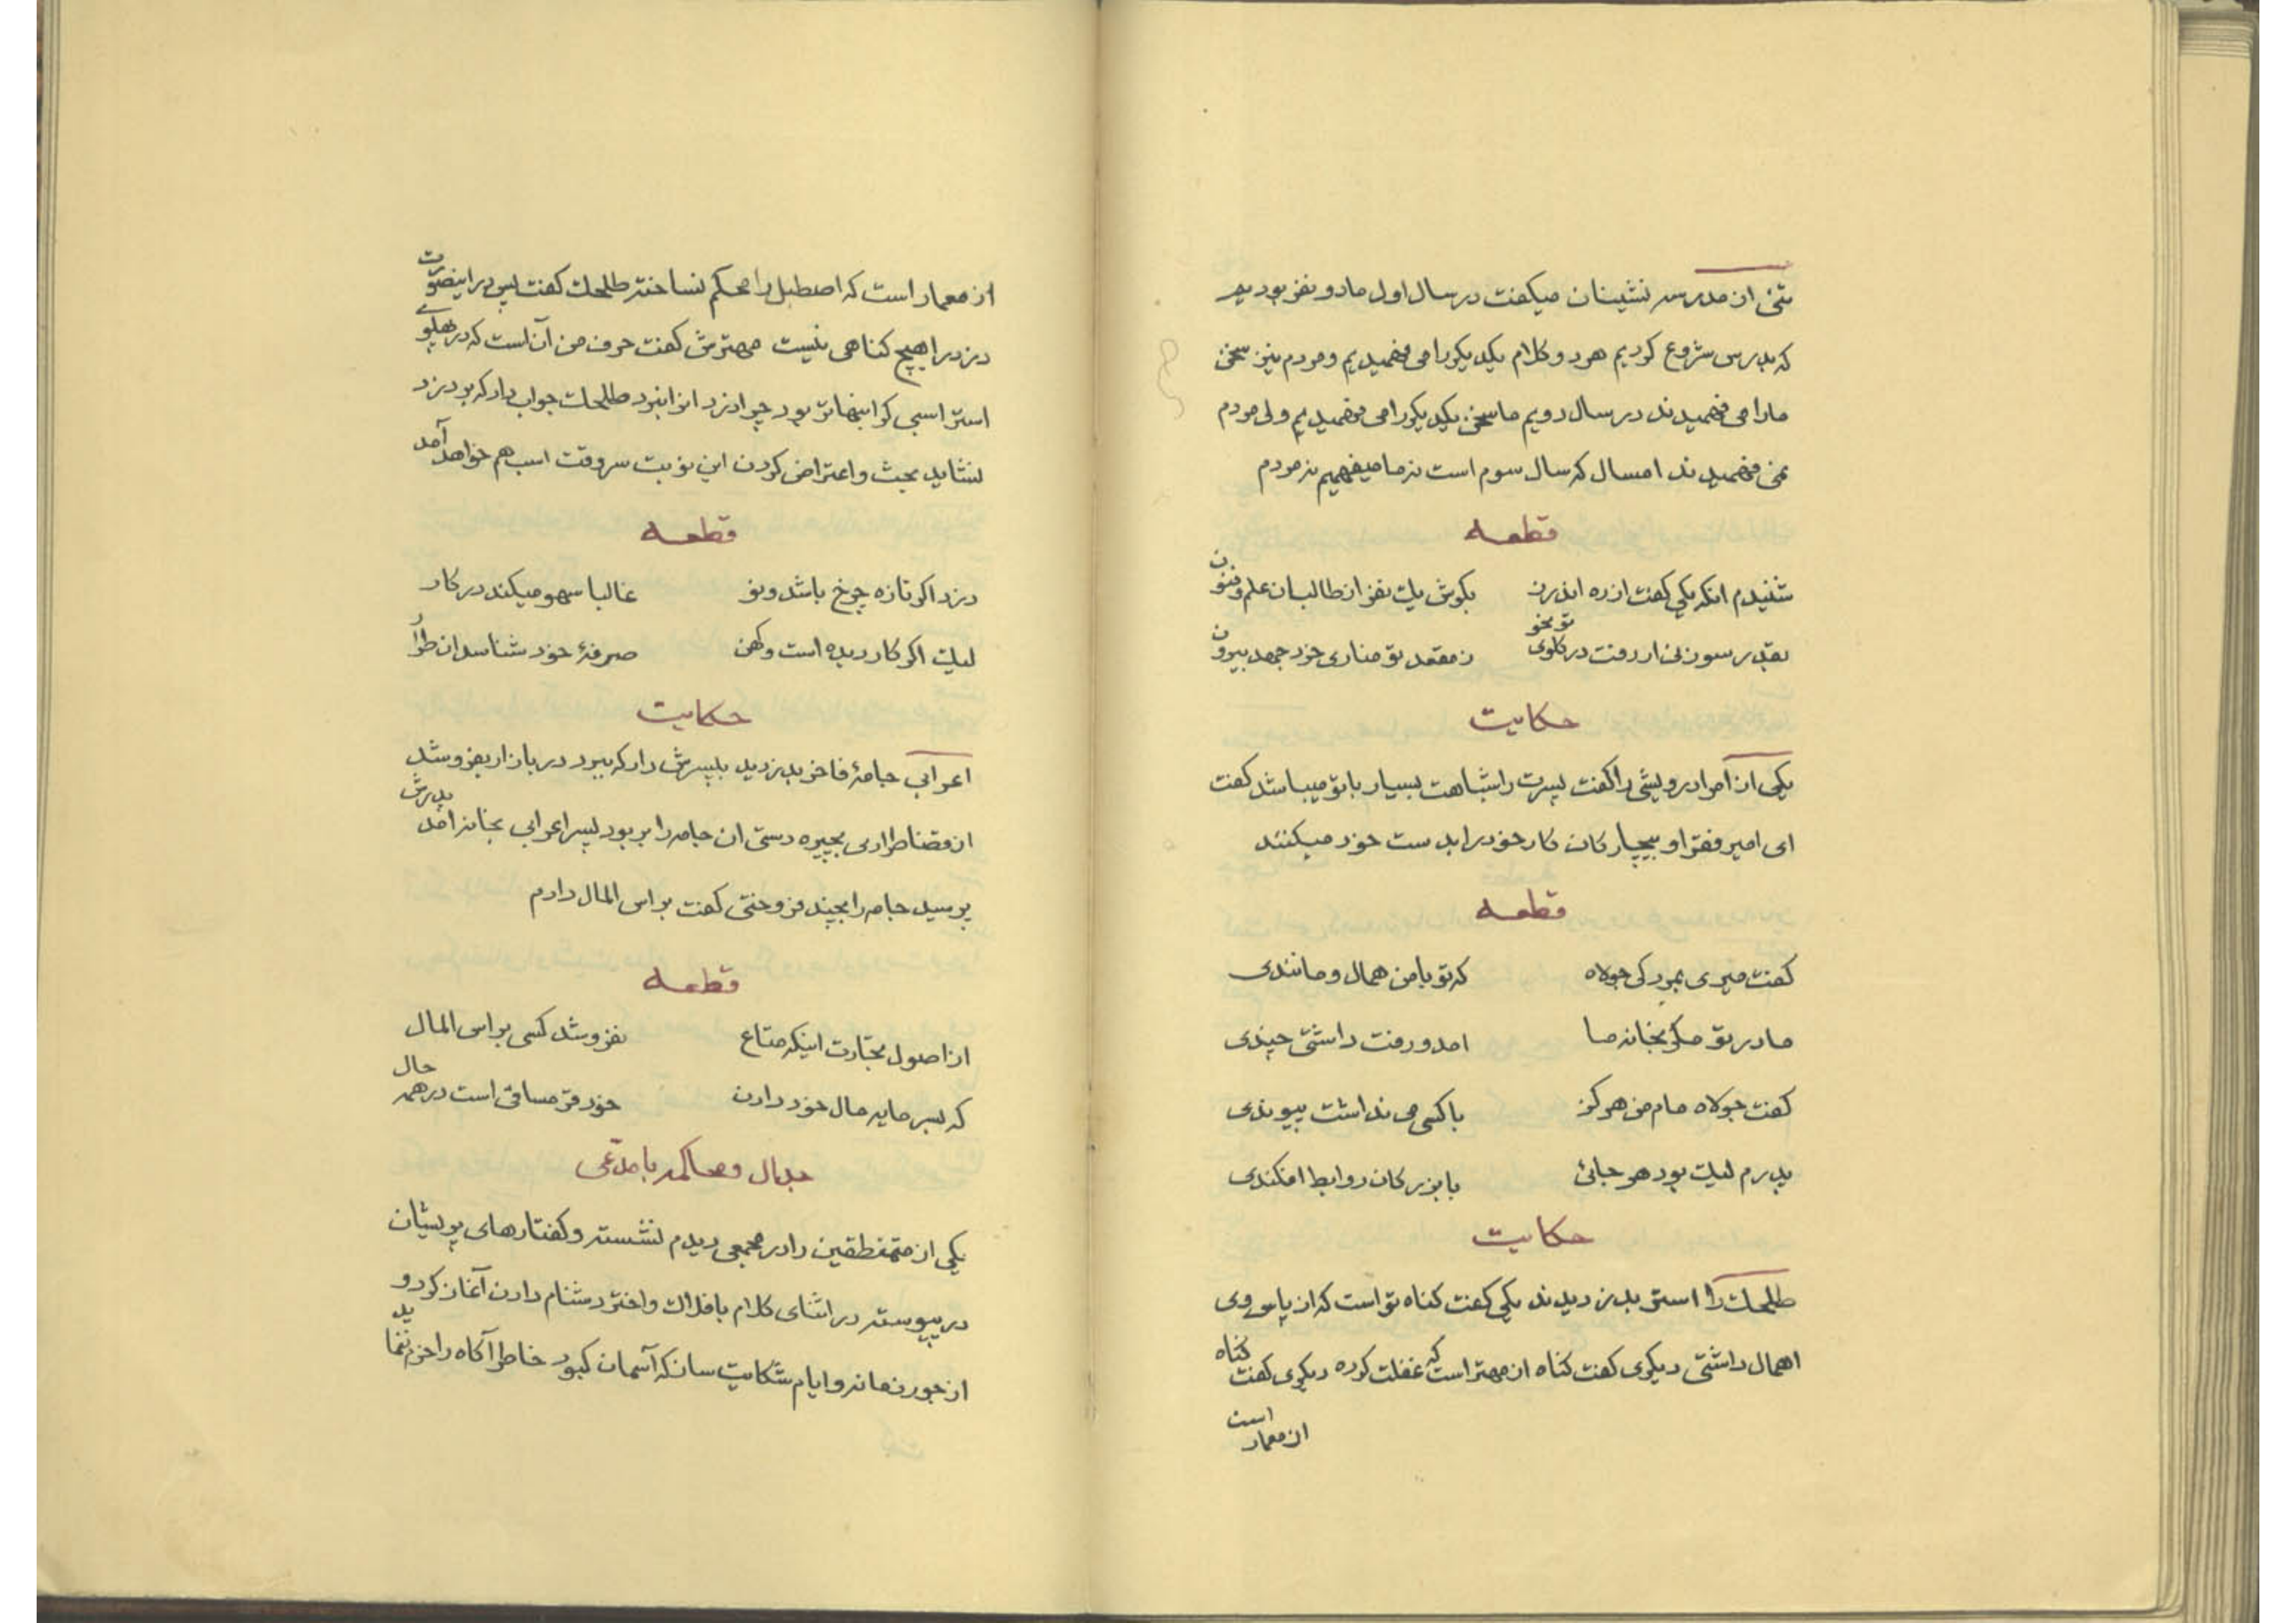 تنی از مدرسه نشینان میکفت در سال اول ما دو نفر بودیم
که بدرس شروع کردیم هر دو کلام یکدیکر را می فهمیدیم و مردم نیز سخن
ما را می فهمیدند در سال دویم ما سخن یکدیکر را می فهمیدیم ولی مردم
نمی فهمیدند امسال که سال سوم است نه ما میفهمیم نه مردم
قطعه
شنیدم انکه یکی کفت از ره اندرز بکوش یک نفر از طالبان علم و فنون
بقدر سوزنی ار رفت در کلوی تو نحو ز مقعد تو مناری خرد جهد بیرون
حکایت
یکی از امرا درویشی را کفت پسرت را شباهت بسیار با تو میباشد کفت
ای امیر فقرا و بیچارکان کار خود را بدست خود میکنند
قطعه
کفت میری بمردکی جولاه که تو با من همال و مانندی
مادر تو مکر بخانه ما امد و رفت داشتی چندی
کفت جولاه مام من هرکز با کسی می نداشت پیوندی
پدرم لیک بود هر جائی با بزرکان روابط افکندی
حکایت
طلحک را استر بدزدیدند یکی کفت کناه تو است که از پاس وی
اهمال داشتی دیکری کفت کناه از مهتر است که غفلت کرده دیکری کفت کناه
از معمار است
از معمار است که اصطبل را محکم نساخته طلحک کفت پس در اینصورت
دزد را هیچ کناهی نیست مهترش کفت حرف من آن است که در پهلوی
استر اسبی کرانبهاتر بود چرا دزد انرا نبرد طلحک جواب داد که بر دزد
نشاید بحث و اعتراض کردن این نوبت سر وقت اسب هم خواهد آمد
قطعه
دزد اکر تازه چرخ باشد و نو غالبا سهو میکند در کار
لیک اکر کار دیده است و کهن صرفهٔ خود شناسد ان طرار
حکایت
اعرابی جامهٔ فاخر بدزدید بپسرش داد که ببرد در بازار بفروشد
از قضا طراری بچیره دستی ان جامه را بربود پسر اعرابی بخانه امد پدرش
پرسید جامه را بچند فروختی کفت براس المال دادم
قطعه
از اصول تجارت اینکه متاع نفروشد کسی براس المال
که بسرمایه مال خود دادن خود قرمساقی است در همه حال
جدال و محاکمه با مدّعی
یکی از متمنطقین را در مجمعی دیدم نشسته و کفتارهای پریشان
در پیوسته در اثنای کلام بافلاک و اختر دشنام دادن آغاز کرد و
از جور زمانه و ایام شکایت ساز که آسمان کبود خاطر آکاه را خرم ننماید